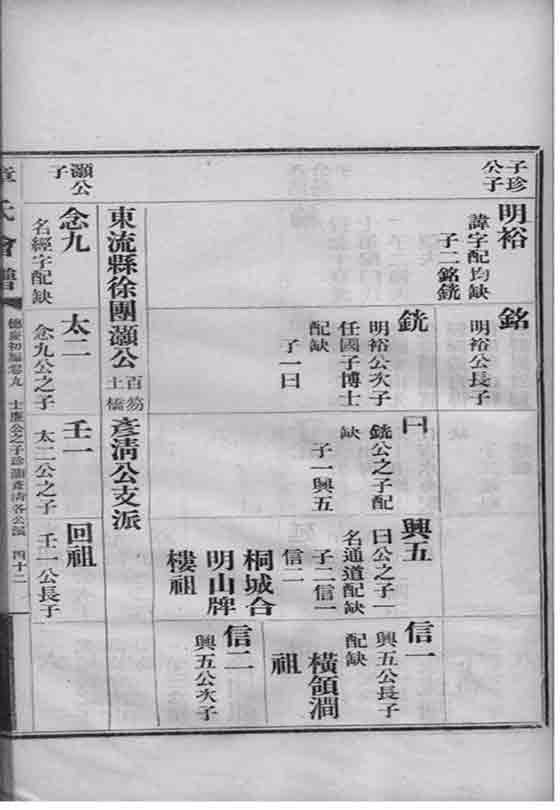 子珍
公子
明裕
諱字配均缺
子二銘銑
銘
明裕公長子
銑
明裕公次子
任國子博士
配缺
子一曰
曰
銑公之子配
缺
子一興五
興五
曰公之子一
名通道配缺
子二信一
信二
桐城合
明山牌
樓祖
信一
興五公長子
配缺
橫領澗
祖
信二
興五公次子
東流縣徐團灝公
百笏
土橋
彥清公支派
灝公
子
念九
名經字配缺
太二
念九公之子
壬一
太二公之子
回祖
壬一公長子
章氏會譜
德慶初編卷九
士廉公之子珍灝彥清各公派
四十二